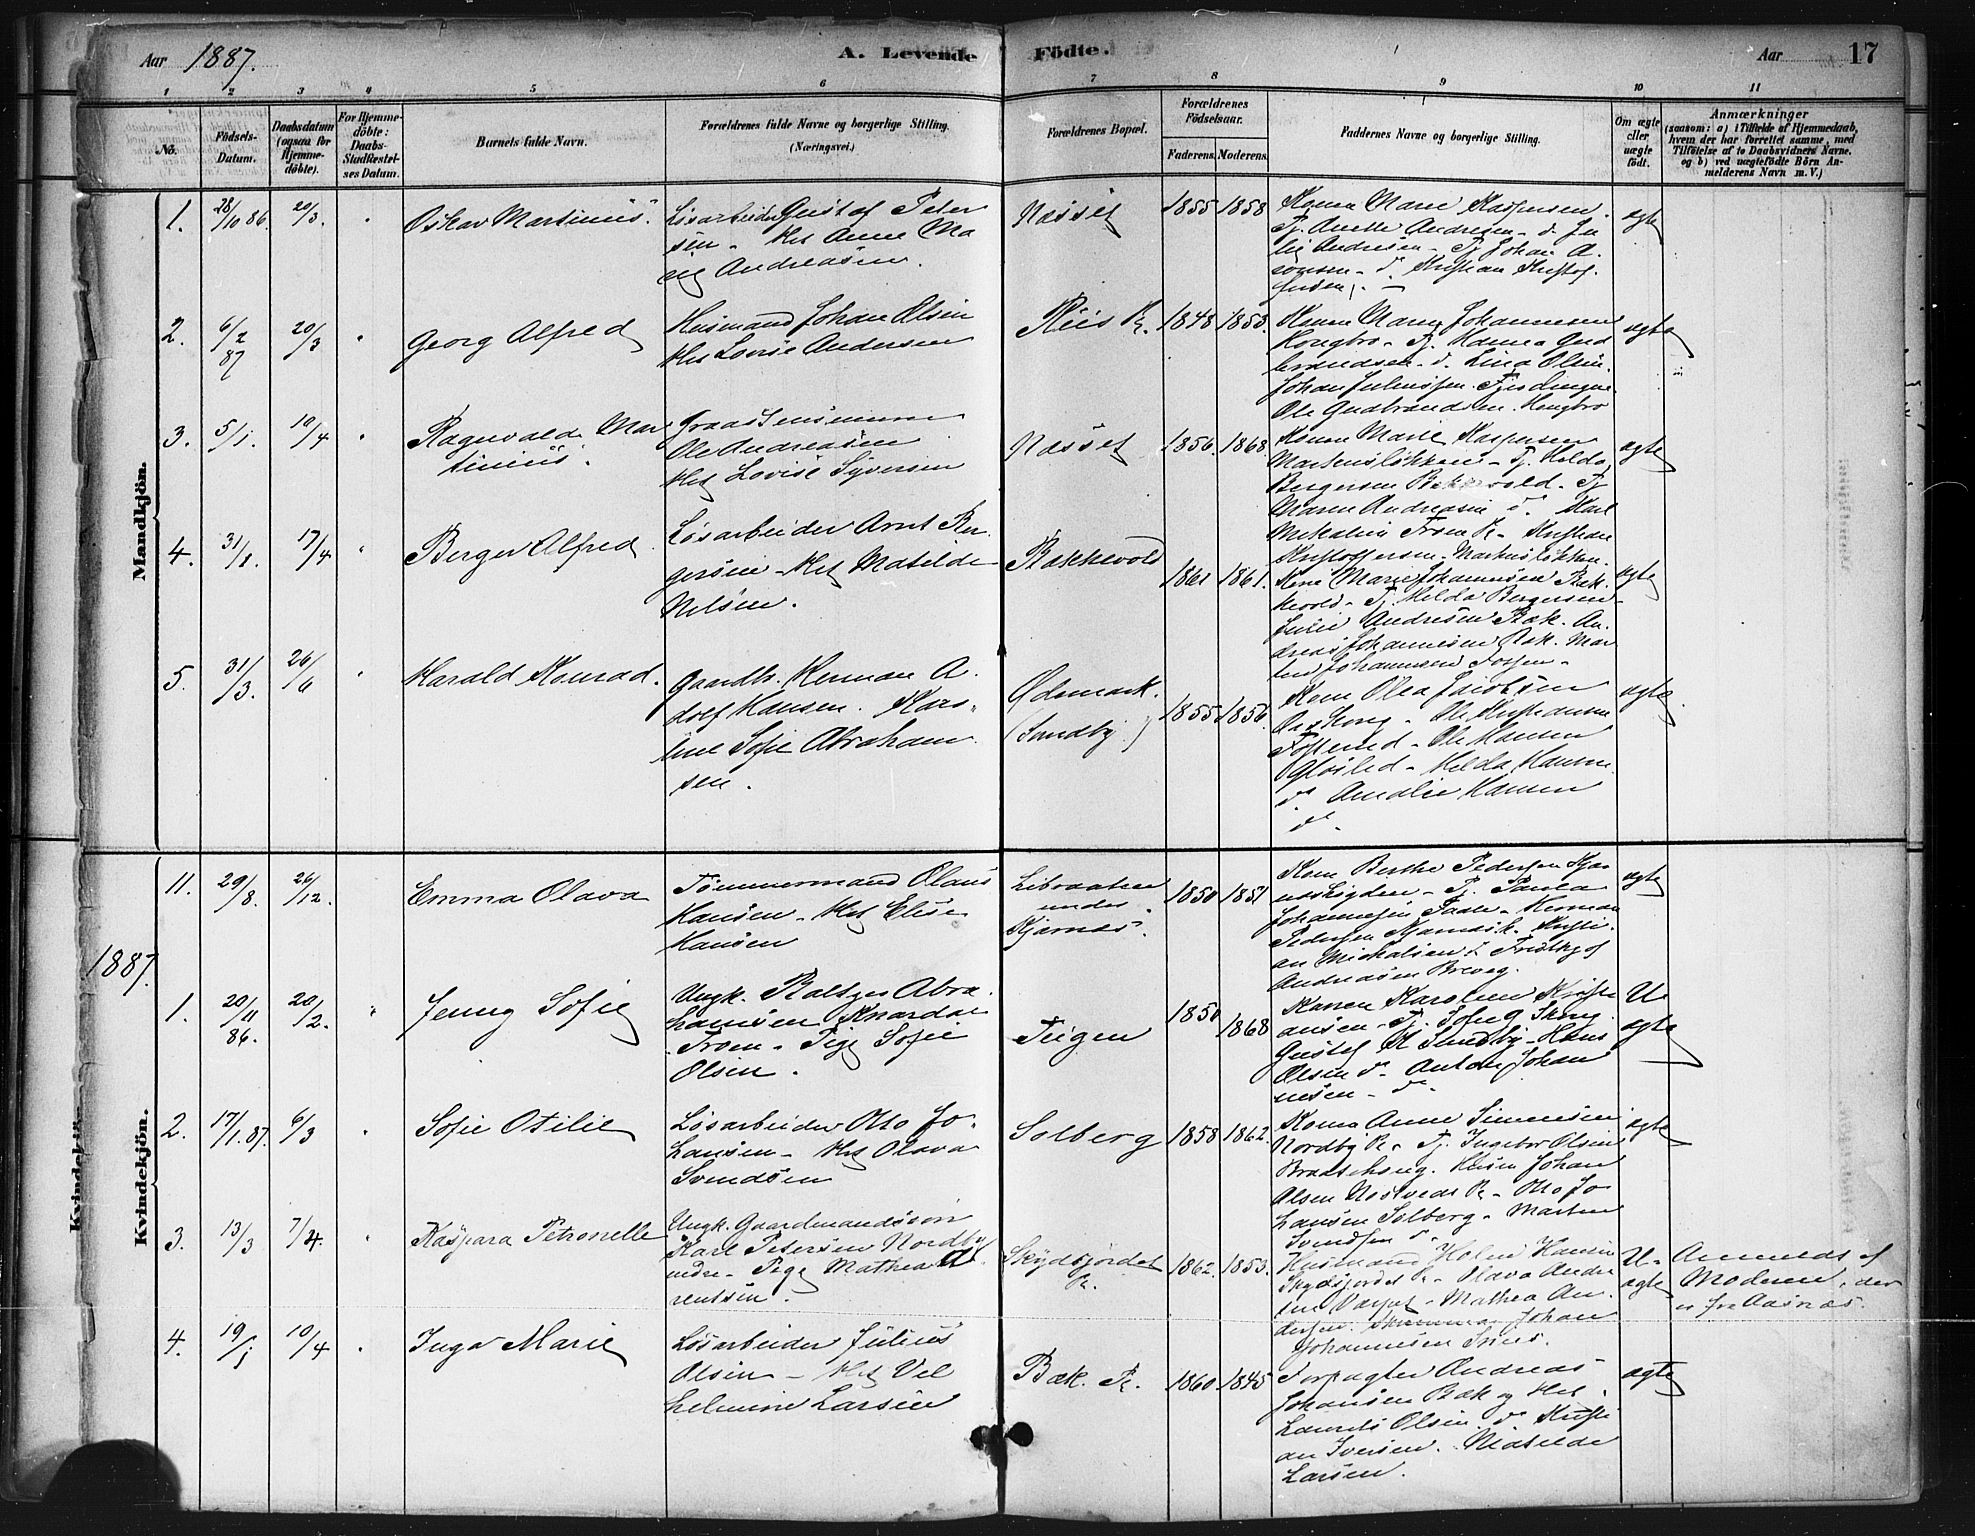 Aar 1887.
A. Levende Födte.
Aar
17
1 2 3 4 5 6 7 8 9 10 11
No.
Födsels-
Datum.
Daabsdatum
(ogsaa for
Hjemme-
döbte).
For Hjemme-
döbte:
Daabs-
Stadfæstel-
ses Datum.
Barnets fulde Navn.
Forældrenes fulde Navne og borgerlige Stilling.
(Næringsvei.)
Forældrenes Bopæl.
Forældrenes
Födselsaar.
Faderens.
Moderens.
Faddernes Navne og borgerlige Stilling.
Om ægte
eller
uægte
födt.
Anmærkninger
(saasom: a) i Tilfælde af Hjemmedaab,
hvem der har forrettet samme, med
Tilföielse af to Daabsvidners Navne.
og b) ved uægtefödte Börn An-
melderens Navn m. V.)
Mandkjön.
1. 28/10 86. 20/3. " Oskar Martinius.
Løsarbeider Gustaf Peter
sen - Hst Anne Ma
rie Andreasen.
Næsset
1855 1858
Kone Marie Kaspersen.
Pj. Anette Andresen - do Ju
lie Andresen - Pj Johan A.
- do. Kristian Kristof
fersen. -
ægte
2. 6/2 87 20/3 " Georg Alfred
Husmand Johan Olsen
Hst Lovise Andersen
Riis R.
1848 1853.
Konen Maren Johannesen
Kongbro - Pj. Hanna Gud
brandsen - do. Lina Olsen.
Johan
Ole Gudbrandsen. Kongbro
ægte
3. 5/1. 10/4 " Ragnvald Mar
tinius.
Ole Andreasen
Hst Lovise Syversen
Næsset
1856. 1868
Konen Marie Kaspersen
Martensløkken - Pj. Helda
Bergersen Bakkevold - Pj
Maren Andreasen do. Karl
Mikalsen Troen R. - Kristian
Kristoffersen - Martensløkken.
ægte
4. 31/1. 17/4 " Berger Alfred
Løsarbeider Arnt Ber
gersen - Hst Matilde
Nilsen.
Bakkevold
1861 1861.
Kone Marie Johannesen Bak
kevold - Pj. Helda Bergersen -
Julie Andresen Bak. An
dreas Johannesen Bak. Mar
tin Johannesen Fossen -
ægte
5. 31/3. 26/6 " Harald Konrad.
Gaardb. Herman A.
dolf Hansen. Karo-
line Sofie Abraham
sen.
Ødemark.
(Sundby.)
1855
Kone Olea Jacobsen
- Ole Kristiansen
- Ole Hansen
- Helda Hansen
do. Amalie Hansen
do -
ægte
Kvindekjön
11. 29/8. 26/12. Emma Olava
Tømmermand Olaus
Hansen - Hst Elise
Hansen
Libraaten
under
Kjærnes.
1850 1851
Kone Berthe Pedersen
- Pj. Paula
Johannesen - Herman
Pedersen - Kristi
an Mickalsen -
Andreasen Breveg.
ægte
1887.
Kvindekjön.
1. 20/11 86. 20/2. " Jenny Sofie
Ungk. Baltzer Abra
hamsen Knardal
Troen - Pige Sofie
Olsen.
Teigen
1850 1868
Karen Karoline Kristi
ansen - Pj. Sofie
Gustaf R Sundby - Hans
Olsen do. Anton Johan
nesen - do.
U
ægte
2. 17/1.87. 6/3 " Sofie Otilie
Løsarbeider Otto Jo-
hansen - Hst Olava
Svendsen
Solberg
1858 1862.
Kone Anne Simensen
Nordby R. - Pj. Ingebor Olsen
Braatehaug. Johan
Olsen Nøstvedt R - Otto Jo
hansen Solberg - Marten
Svendsen do.
ægte
3. 13/3 7/4. " Kaspara Petronelle
Ungk. Gaardmandssøn
Karl Petersen Nordby
nedre - Pige Mathea A
rentsen.
Skydsjordet
R.
1862. 1853.
Husmand Holm Hansen
Skydsjordet R. - Olava Andre
sen - Mathea An
dersen. Johan
Johannesen
U-
ægte
Anmeldt af
Moderen, der
er fra Aasnæs.
4. 19/1 10/4 " Inga Marie
Løsarbeider Julius
Olsen - Hst Vel
helmine Larsen
Bæk. R.
1860 1845
Forpagter Andreas
Johansen Bæk og Hst.
Laurits Olsen. do Kristi
an Iversen. Matilde
Larsen.
ægte